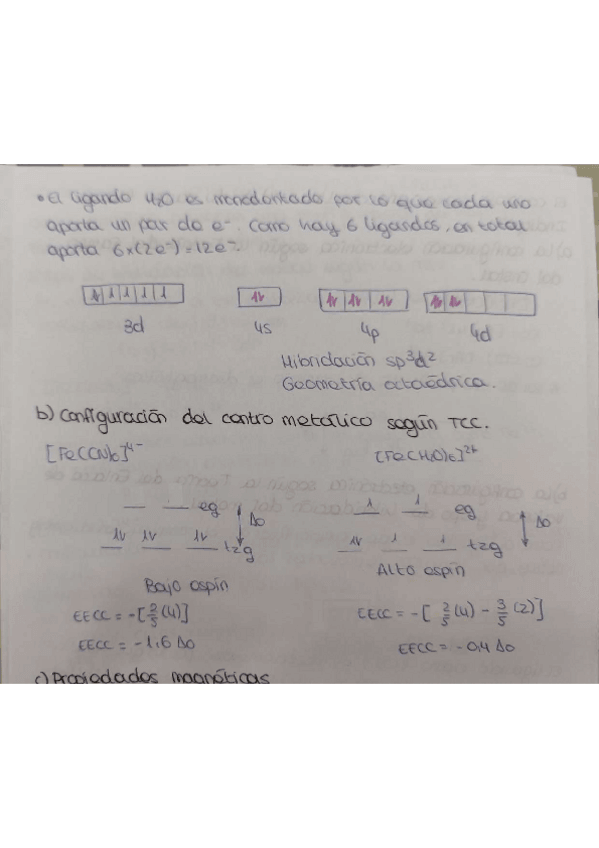 • El ligando H2O es monodentado por lo que cada uno
aporta un par de e⁻. Como hay 6 ligandos, en total
aporta 6x(2e⁻)=12e⁻.
3d 4s 4p 4d
Hibridación sp³d²
Geometría octaédrica.
b) Configuración del centro metálico según TCC.
[Fe(CN)6]⁴⁻ [Fe(H2O)6]²⁺
eg Δo eg Δo
t2g t2g
Bajo espín Alto espín
EECC = -[2/5(4)] EECC = -[2/5(4) - 3/5(2)]
EECC = -1,6 Δo EECC = -0,4 Δo
c) Propiedades magnéticas